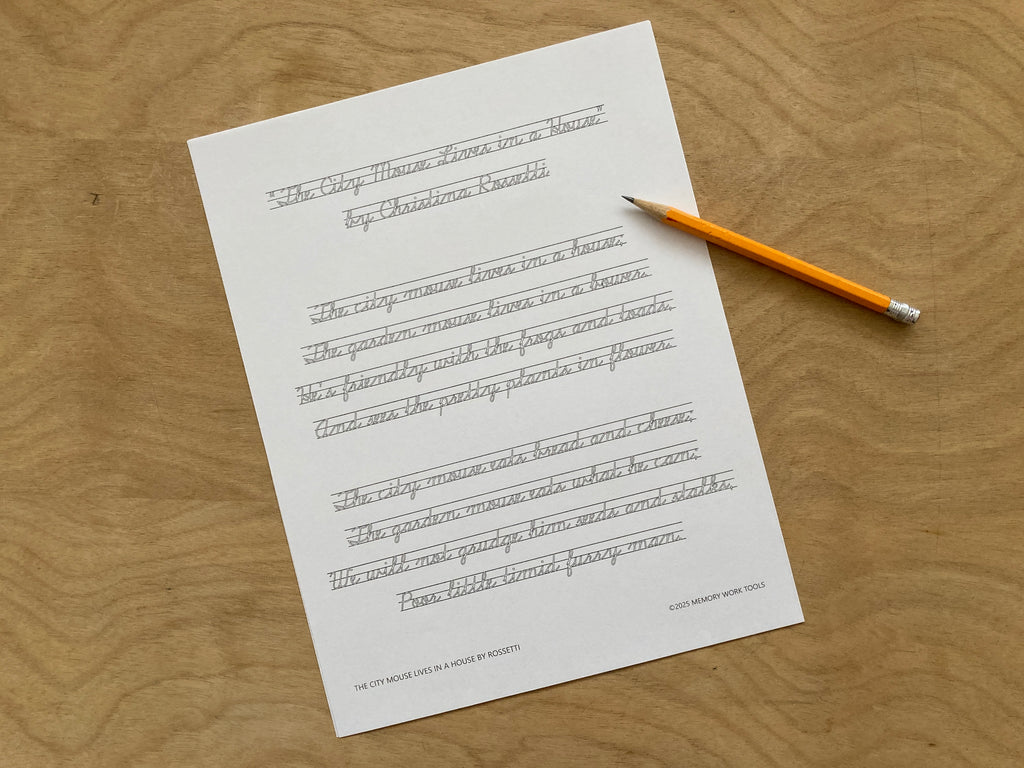 "The City Mouse Lives in a House"
by Christina Rossetti
The city mouse lives in a house;
The garden mouse lives in a bower,
He's friendly with the frogs and toads,
And sees the pretty plants in flower.
The city mouse eats bread and cheese;
The garden mouse eats what he can;
We will not grudge him seeds and stalks,
Poor little timid furry man.
THE CITY MOUSE LIVES IN A HOUSE BY ROSSETTI
©2025 MEMORY WORK TOOLS